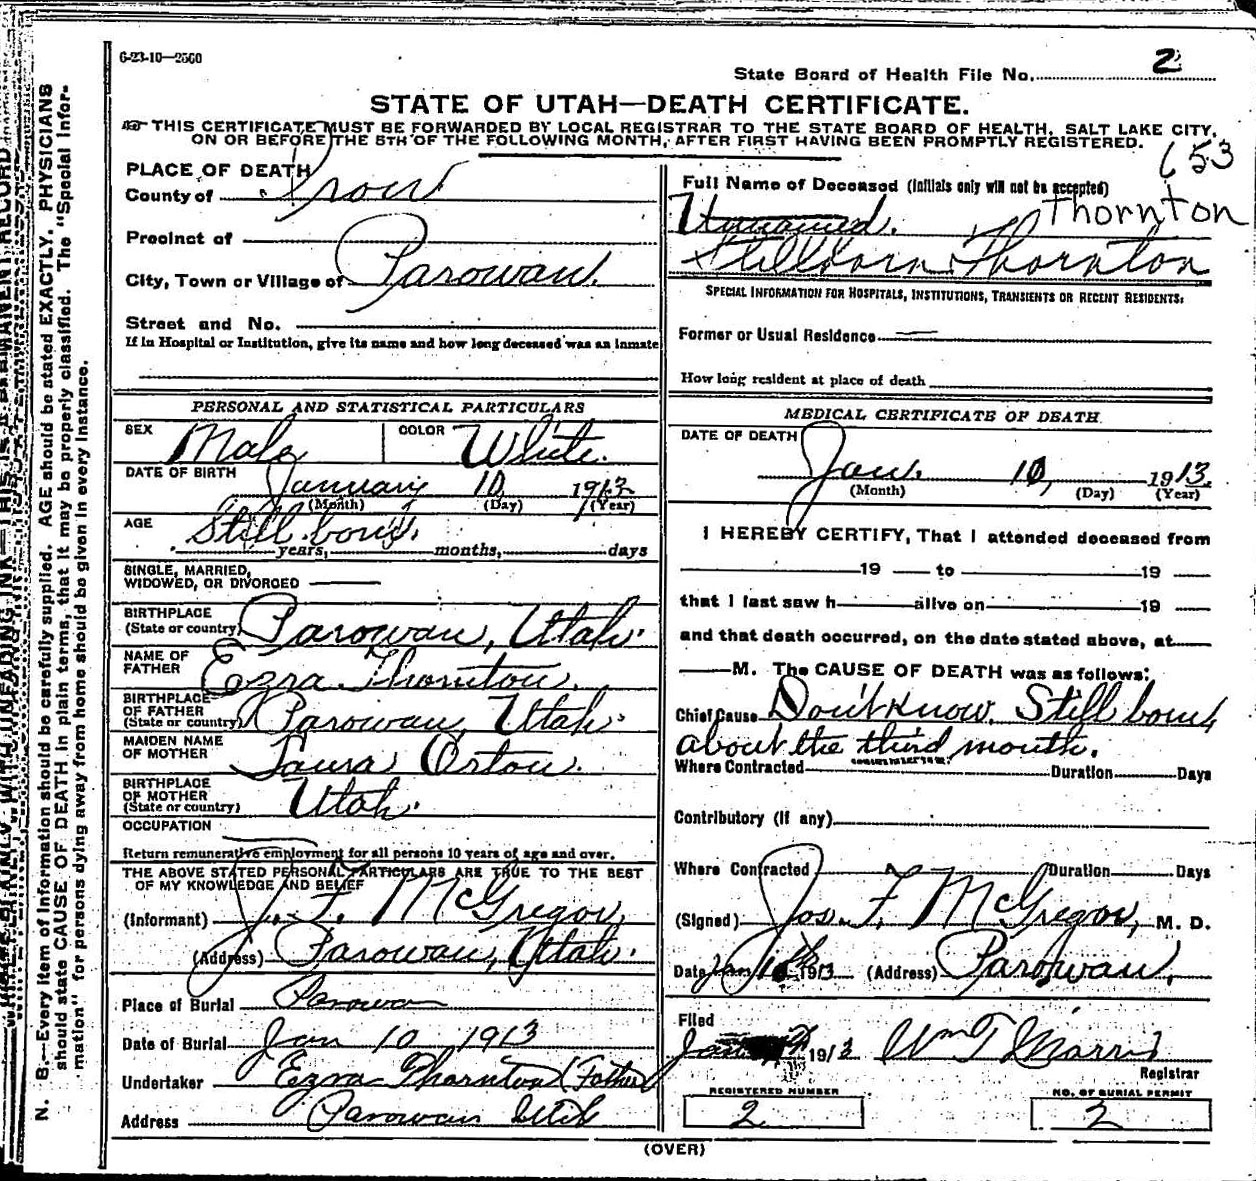 6-23-10—2560
State Board of Health File No. 2
STATE OF UTAH—DEATH CERTIFICATE.
THIS CERTIFICATE MUST BE FORWARDED BY LOCAL REGISTRAR TO THE STATE BOARD OF HEALTH, SALT LAKE CITY,
ON OR BEFORE THE 8TH OF THE FOLLOWING MONTH, AFTER FIRST HAVING BEEN PROMPTLY REGISTERED.
653
PLACE OF DEATH
County of Iron
Precinct of
City, Town or Village of Parowan.
Street and No.
If in Hospital or Institution, give its name and how long deceased was an inmate
Full Name of Deceased (Initials only will not be accepted)
Thornton
Unnamed.
Stillborn Thornton
SPECIAL INFORMATION FOR HOSPITALS, INSTITUTIONS, TRANSIENTS OR RECENT RESIDENTS:
Former or Usual Residence
How long resident at place of death
PERSONAL AND STATISTICAL PARTICULARS
SEX Male COLOR White.
DATE OF BIRTH January 10, 1913
(Month) (Day) (Year)
AGE Still born.
years, months, days
SINGLE, MARRIED,
WIDOWED, OR DIVORCED
BIRTHPLACE
(State or country) Parowan, Utah.
NAME OF
FATHER Ezra Thornton.
BIRTHPLACE
OF FATHER
(State or country) Parowan, Utah.
MAIDEN NAME
OF MOTHER Laura Orton.
BIRTHPLACE
OF MOTHER
(State or country) Utah.
OCCUPATION
Return remunerative employment for all persons 10 years of age and over.
THE ABOVE STATED PERSONAL PARTICULARS ARE TRUE TO THE BEST
OF MY KNOWLEDGE AND BELIEF
(Informant) J. F. McGregor,
(Address) Parowan, Utah.
Place of Burial Parowan
Date of Burial Jan 10 1913
Undertaker Ezra Thornton (Father)
Address Parowan Utah
MEDICAL CERTIFICATE OF DEATH
DATE OF DEATH
Jan. 10, 1913.
(Month) (Day) (Year)
I HEREBY CERTIFY, That I attended deceased from
19 to 19
that I last saw h alive on 19
and that death occurred, on the date stated above, at
M. The CAUSE OF DEATH was as follows:
Chief Cause Don't know. Still born,
about the third month.
Where Contracted Duration Days
Contributory (if any)
Where Contracted Duration Days
(Signed) Jos. F. McGregor, M. D.
Date Jan 1913 (Address) Parowan.
Filed
Jan 1913 Wm T Morris
Registrar
REGISTERED NUMBER
2
NO. OF BURIAL PERMIT
2
(OVER)
N. B.—Every item of information should be carefully supplied. AGE should be stated EXACTLY. PHYSICIANS
should state CAUSE OF DEATH in plain terms, that it may be properly classified. The "Special Infor-
mation" for persons dying away from home should be given in every instance.